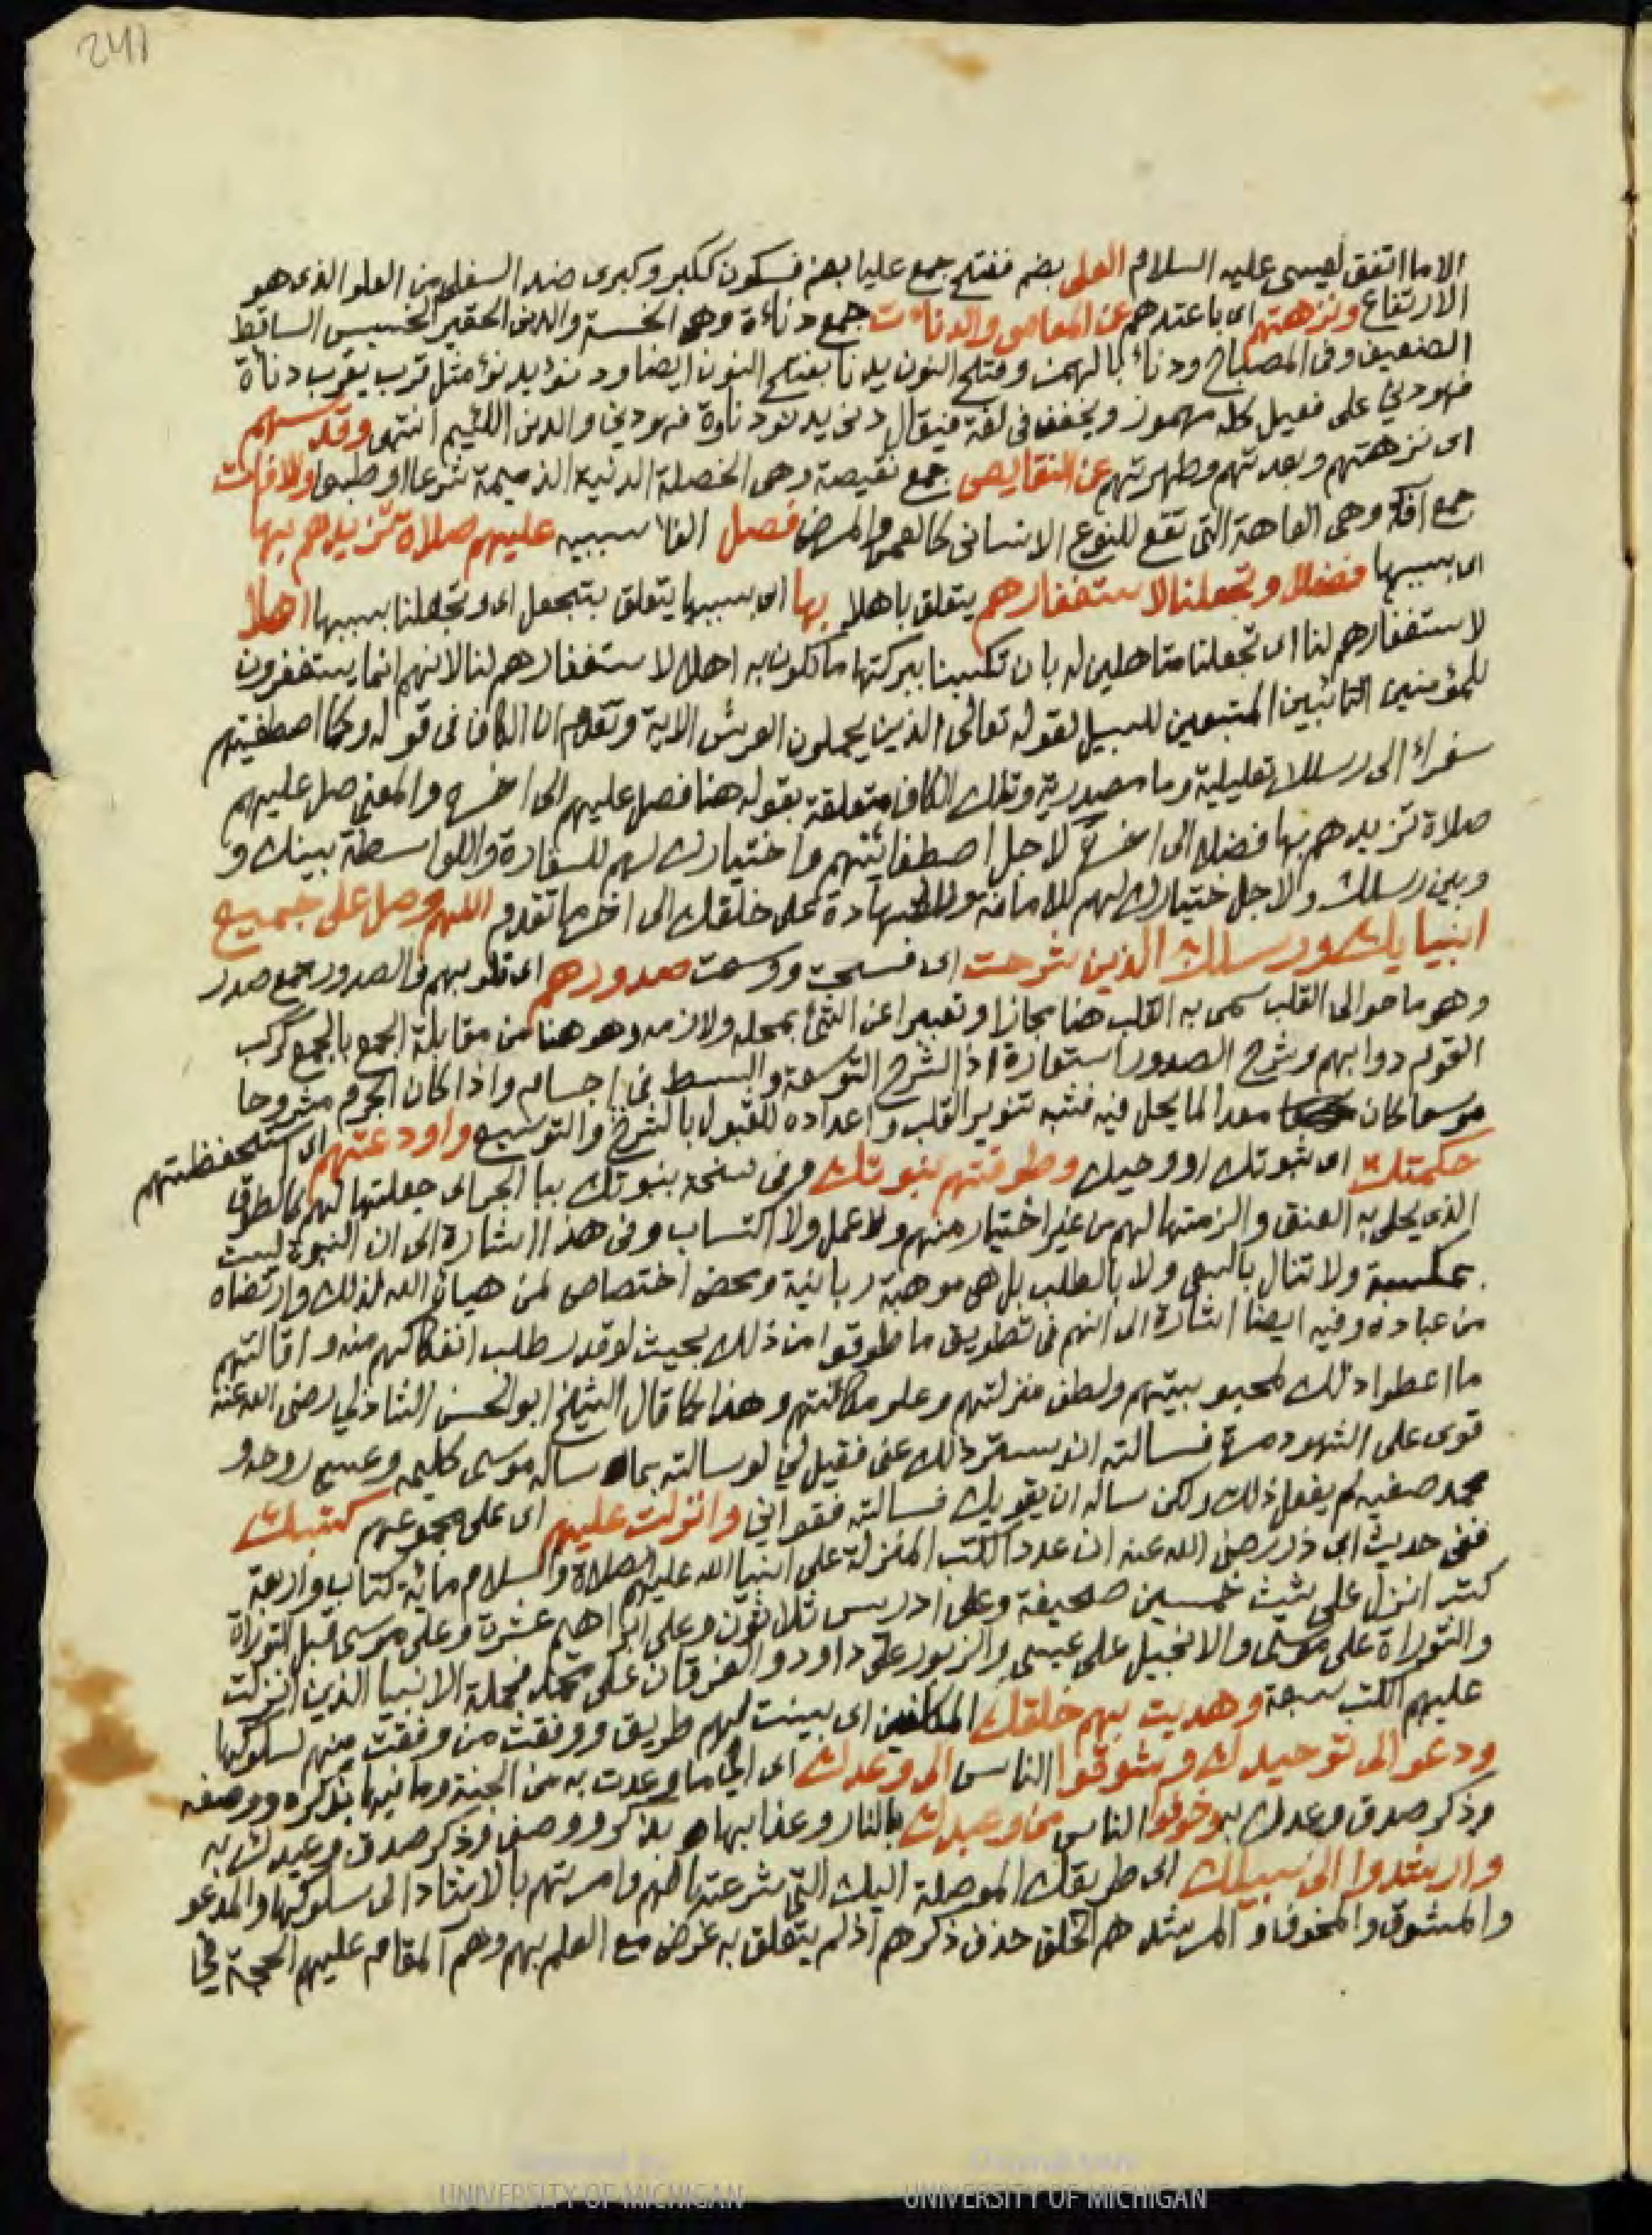 241
الا ما اتفق لعيسى عليه السلام العلى بضم ففتح جمع عليا بضم فسكون ككبر وكبرى ضد السفلى من العلو الذى هو
الارتفاع ونزهتهم اى باعدتهم عن المعاصى والدناءت جمع دناءة وهى الخسة والدنى الحقير الخسيس الساقط
الضعيف وفى المصباح ودنأ بالهمز وفتح النون يدنأ بفتح النون ايضا ودنؤ يدنؤ مثل قرب يقرب دنأة
فهو دنى على فعيل كله مهموز ويخفف فى لغة فيقال دنى يدنو دناوة فهو دنى والدنى اللئيم انتهى وقدستهم
اى نزهتهم وبعدتهم وطهرتهم عن النقايص جمع نقيصة وهى الخصلة الدنية الذميمة شرعا او طبعا والافات
جمع آفة وهى العاهة التى تقع للنوع الانسانى كالعمى والمرض فصل الفا سببيه عليهم صلاة تزيدهم بها
اى بسببها فضلا وتجعلنا لاستغفارهم يتعلق باهلا بها اى بسببها يتعلق بتجعل اى وتجعلنا بسببها اهلا
لاستغفارهم لنا اى تجعلنا متاهلين له بان تكسبنا ببركتها ما نكون به اهلا لاستغفارهم لنا لانهم انما يستغفرون
للمؤمنين التائبين المتبعين للسبيل لقوله تعالى الذين يحملون العرش الاية وتقدم ان الكاف فى قوله وكما اصطفيتهم
سفراء الى رسلك تعليلية وما مصدرية وتلك الكاف متعلقة بقوله هنا فصل عليهم الى اخره والمعنى صل عليهم
صلاة تزيدهم بها فضلا الى اخره لاجل اصطفائتهم واختيارك لهم للسفارة والواسطة بينك و
وبين رسلك ولاجل اختيارك لهم للامانة والشهادة على خلقك الى اخر ما تقدم اللهم وصل على جميع
انبيايك ورسلك الذين شرحت اى فسحت ووسعت صدورهم اى قلوبهم والصدور جمع صدر
وهو ما حوالى القلب سمى به القلب هنا مجازا وتعبيرا عن الشئ بمحله ولازمه وهو هنا من مقابلة الجمع بالجمع كركب
القوم دوابهم وشرح الصدور استعارة اذ الشرح التوسعة والبسط فى اجسام واذا كان الجرم مشروحا
موسعا كان معدا لما يحل فيه فشبه تنوير القلب واعداده للقبول بالشرح والتوسيع واودعتهم اى استحفظتهم
حكمتك اى نبوتك او وحيك وطوقتهم نبوتك وفى نسخة بنبوتك ببا الجر اى جعلتها لهم كالطوق
الذى يحلى به العنق والزمتها لهم من غير اختيار منهم ولا عمل ولا اكتساب وفى هذا اشارة الى ان النبوة ليست
بمكتسبة ولا تنال بالسعى ولا بالطلب بل هى موهبة ربانية ومحض اختصاص لمن هيأه الله لذلك وارتضاه
من عباده وفيه ايضا اشارة الى انهم فى تطويق ما طوقوا من ذلك بحيث لو قدر طلب انفكاكهم منه واقالتهم
ما اعطوا ذلك لمحبوبيتهم ولطف منزلتهم وعلو مكانتهم وهذا كما قال الشيخ ابو الحسن الشاذلى رضى الله عنه
قوى على الشهود مرة فسالته ان يستر ذلك عنى فقيل لى لو سالته بما ساله موسى كليمه وعيسى روحه و
محمد صفيه لم يفعل ذلك ولكن ساله ان يقويك فسالته فقوانى وانزلت عليهم اى على مجموعهم كتبك
ففى حديث ابى ذر رضى الله عنه ان عدد الكتب المنزلة على انبيا الله عليهم الصلاة والسلام مائة كتاب واربعة
كتب انزل على شيث خمسين صحيفة وعلى ادريس ثلاثون وعلى ابراهيم عشرة وعلى موسى قبل التوراة
والتوراة على موسى والانجيل على عيسى والزبور على داود والفرقان على محمد فجملة الانبيا الذين انزلت
عليهم الكتب سبعة وهديت بهم خلقك المكلفين اى بينت لهم طريق ووفقت من وفقت منهم لسلوكها
ودعوا الى توحيدك وشوقوا الناس الى وعدك اى الى ما وعدت به من الجنة وما فيها بذكره ووصفه
وذكر صدق وعدك به وخوفوا الناس من وعيدك بالنار وعذابها بذكر ووصف وذكر صدق وعيدك به
وارشدوا الى سبيلك اى طريقك الموصلة اليك التى شرعتها لهم وامرتهم بالارشاد الى سلوكها والمدعو
والمشوق والمخوف والمرشد هم الخلق حذف ذكرهم اذ لم يتعلق به غرض مع العلم بهم وهم المقام عليهم الحجة فى
UNIVERSITY OF MICHIGAN
UNIVERSITY OF MICHIGAN